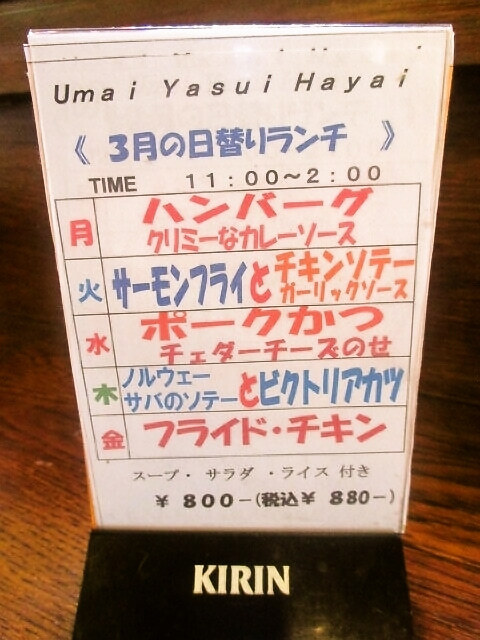 Umai Yasui Hayai
《 3月の日替りランチ 》
TIME 11:00～2:00
月 ハンバーグ
クリミーなカレーソース
火 サーモンフライとチキンソテー
ガーリックソース
水 ポークかつ
チェダーチーズのせ
木 ノルウェー
サバのソテーとビクトリアカツ
金 フライド・チキン
スープ・サラダ・ライス付き
¥800-(税込¥880-)
KIRIN